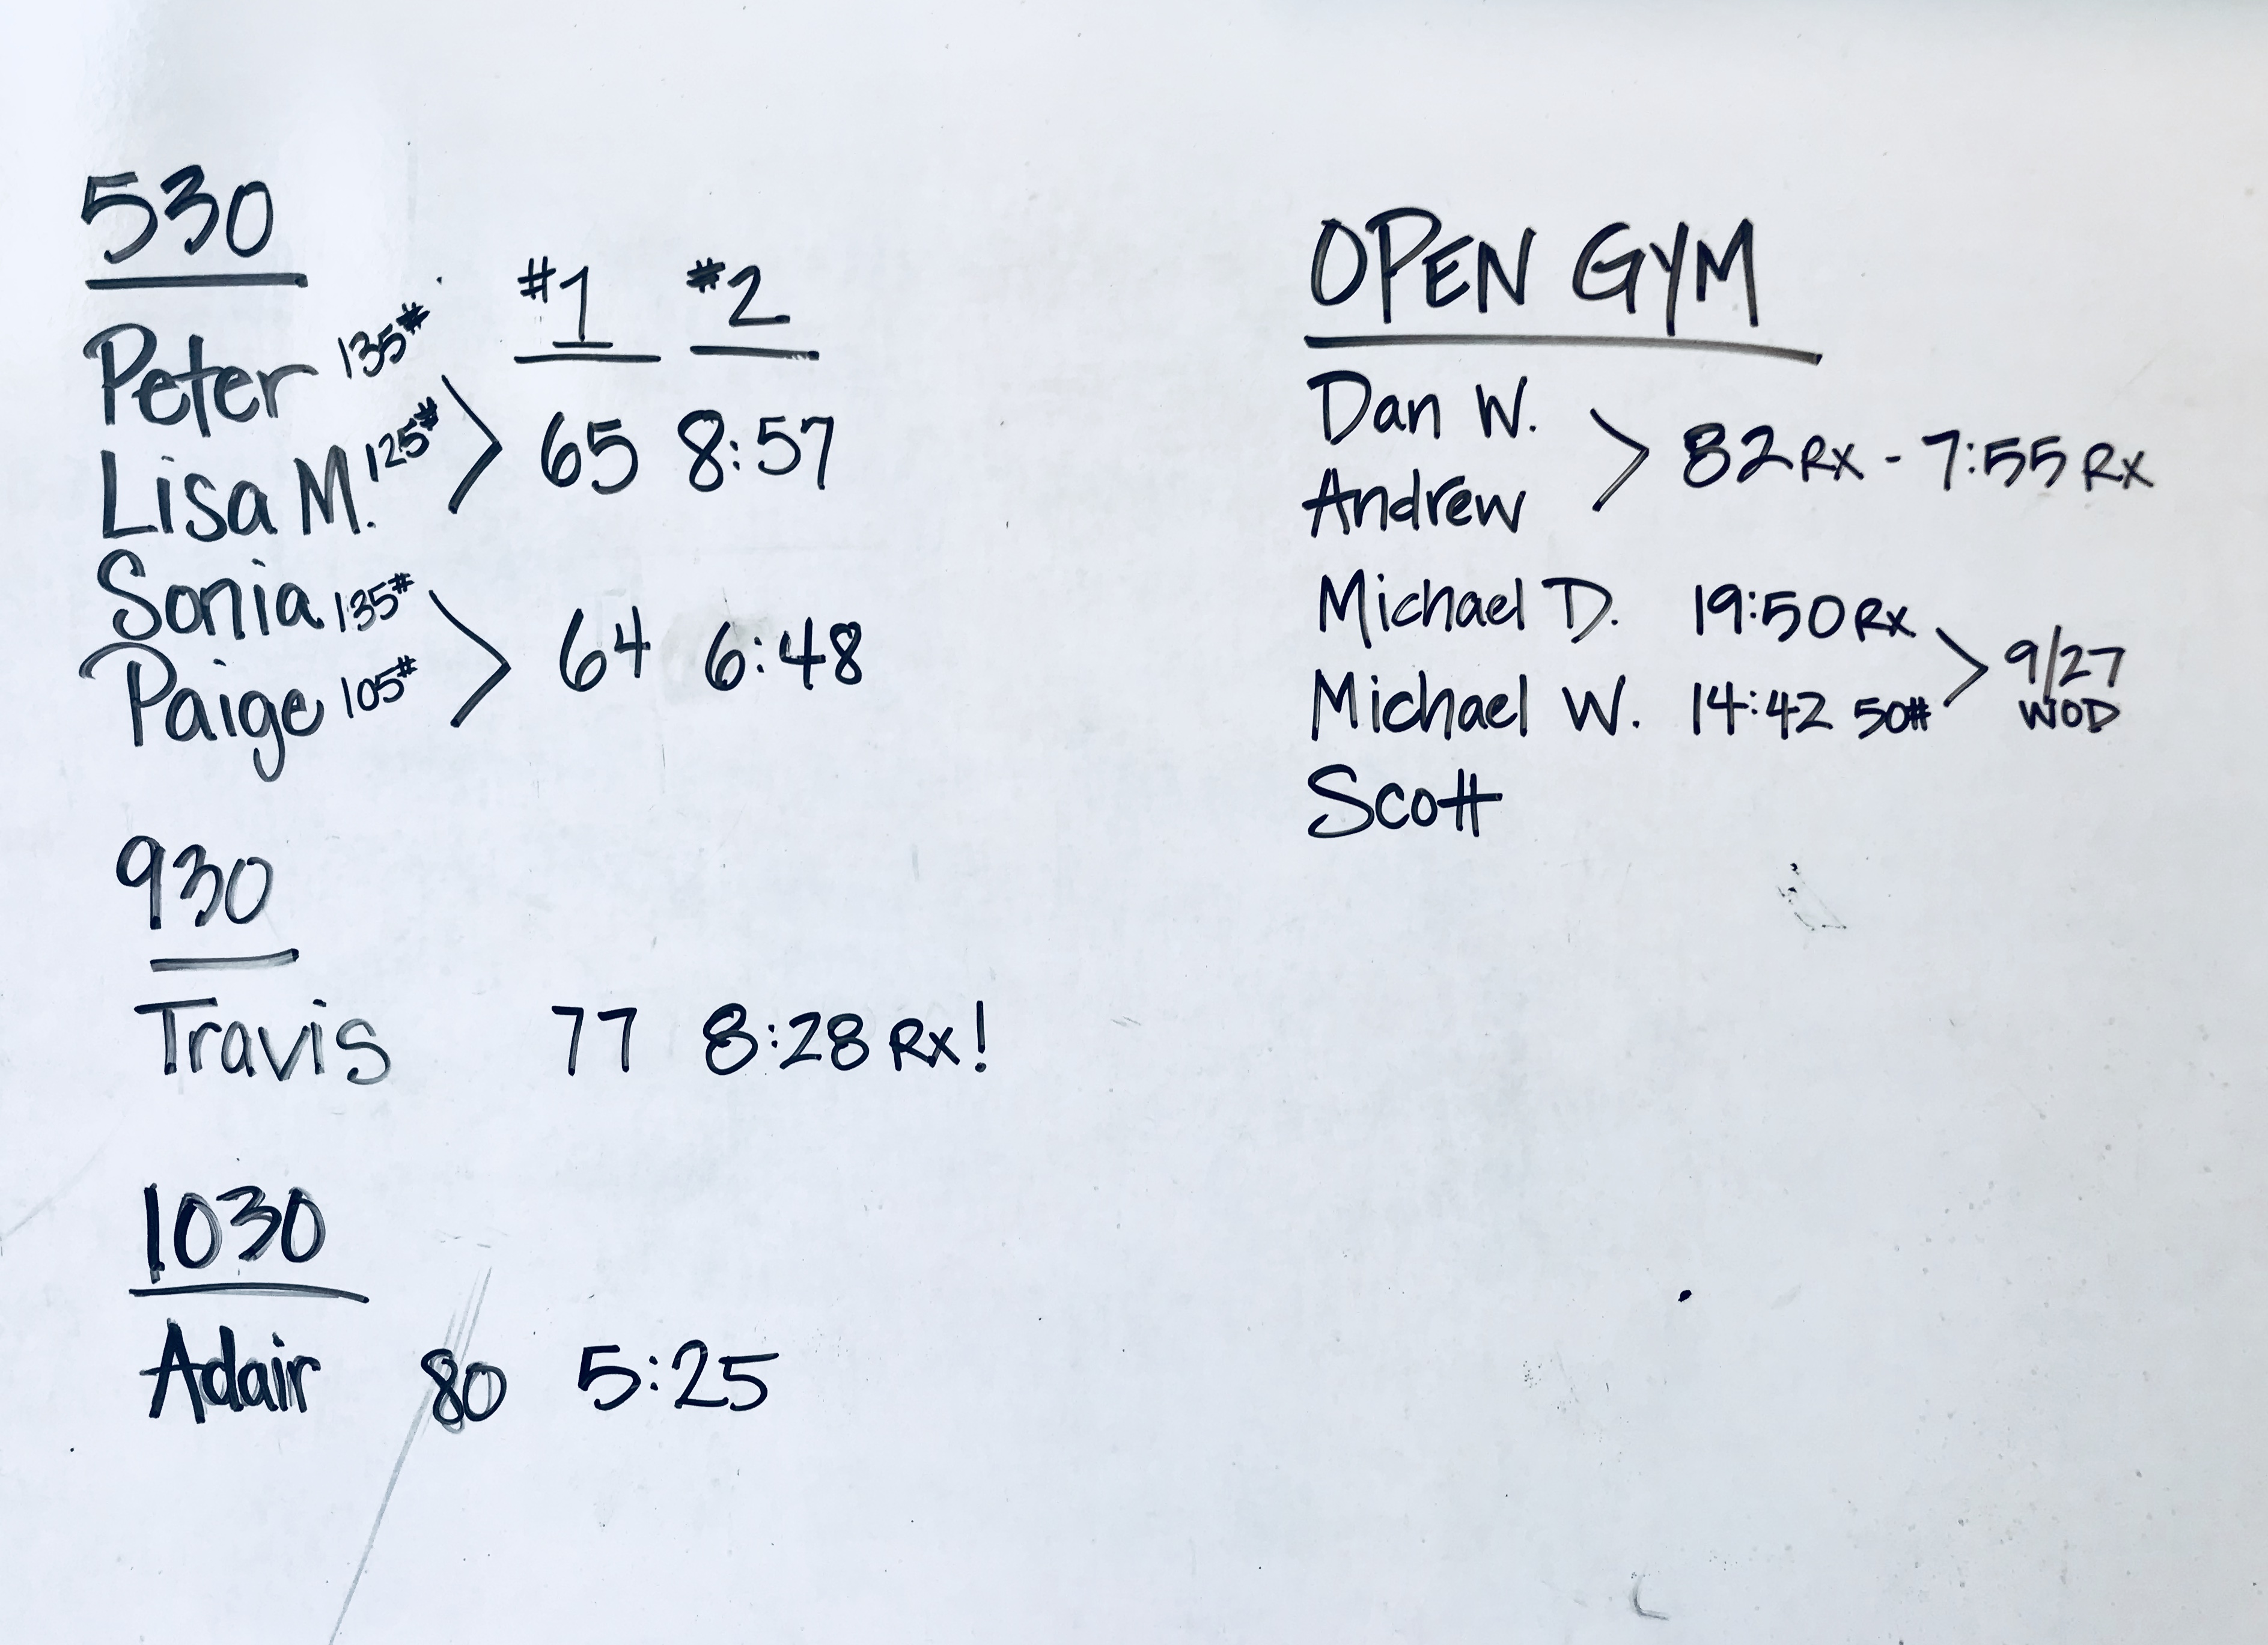 530
#1 #2
Peter 135#
Lisa M. 125# > 65 8:57
Sonia 135#
Paige 105# > 64 6:48
930
Travis 77 8:28 Rx!
1030
Adair 80 5:25
OPEN GYM
Dan W.
Andrew > 82 RX - 7:55 RX
Michael D. 19:50 RX
Michael W. 14:42 50# > 9/27
WOD
Scott